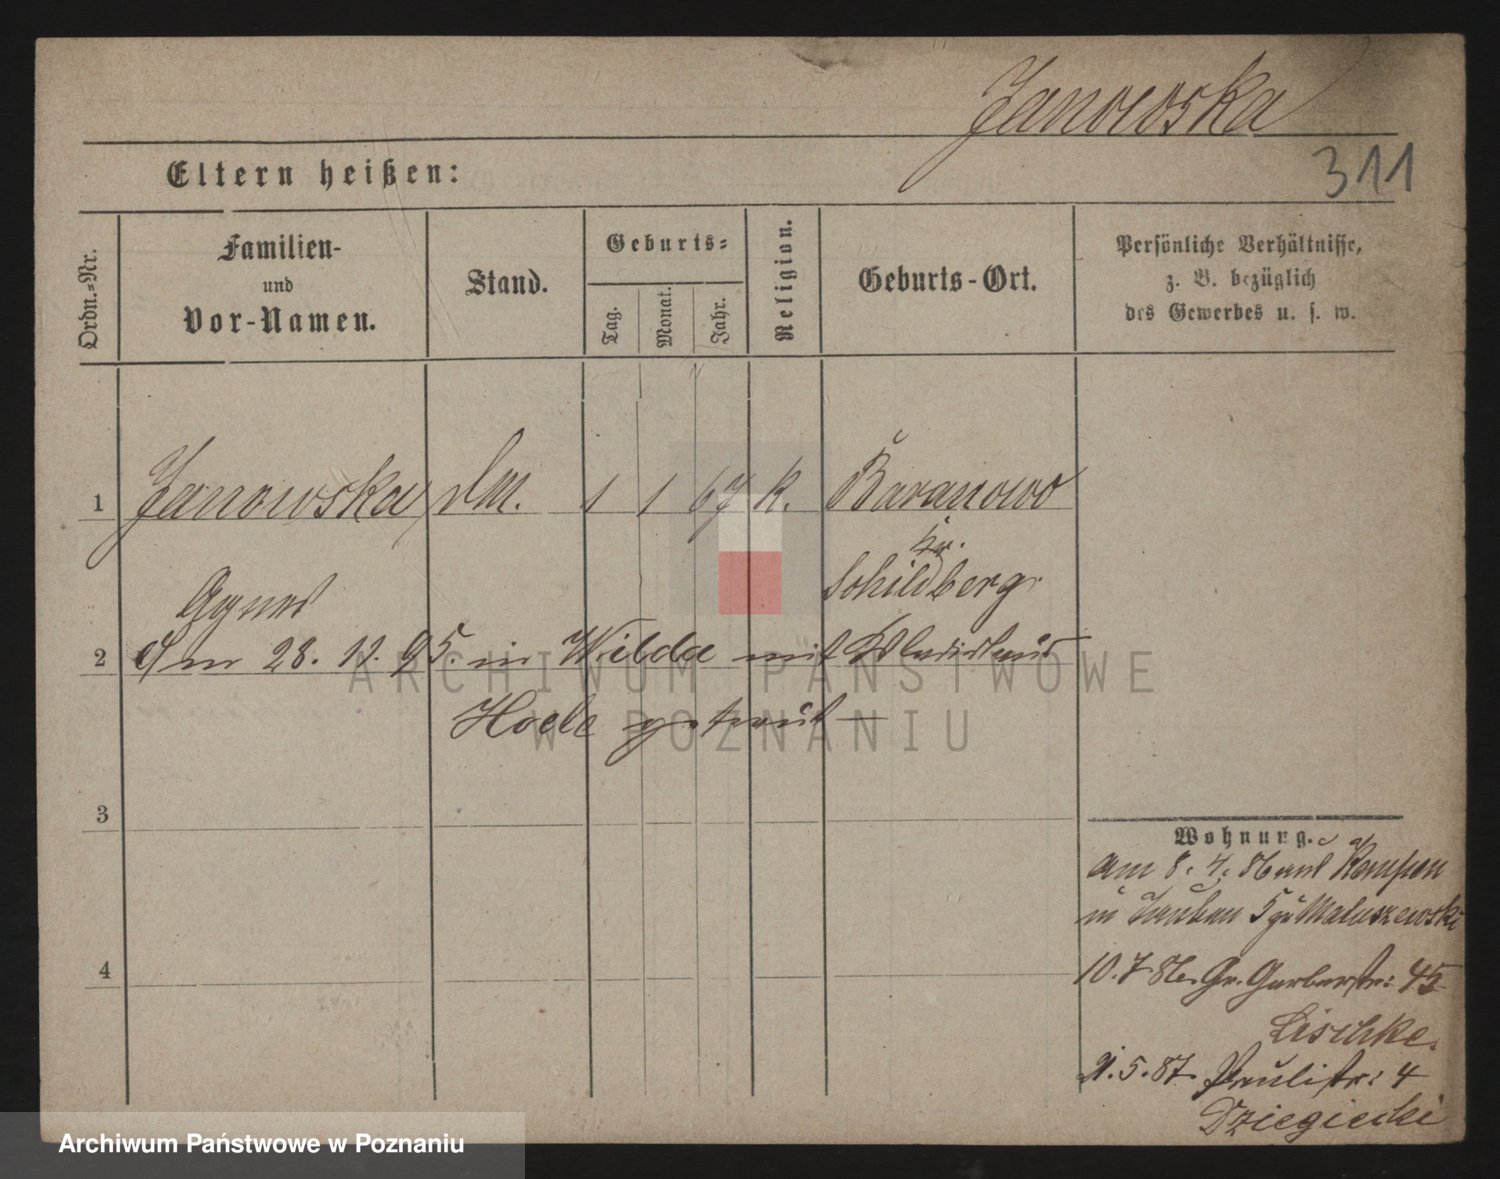 Janowska
311
Eltern heißen:
Ordn.-Nr.
Familien-
und
Vor-Namen.
Stand.
Geburts-
Tag.
Monat.
Jahr.
Religion.
Geburts-Ort.
Persönliche Verhältnisse,
z. B. bezüglich
des Gewerbes u. s. w.
1 Janowska dm. 1 1 67 k. Baranowo
Kr.
Schildberg
Agnes
2 Am 28. 11. 95. in Wilda mit Wladislaus
getraut —
3
Wohnung.
am 8. 7. 86 aus Kempen
in 5 zu Matuszewski
4
10. 7 86. Gr. Gerberstr: 45
Lischke.
21. 5. 87. Paulistr: 4
Dziegiecki
ARCHIWUM PAŃSTWOWE
W POZNANIU
Archiwum Państwowe w Poznaniu